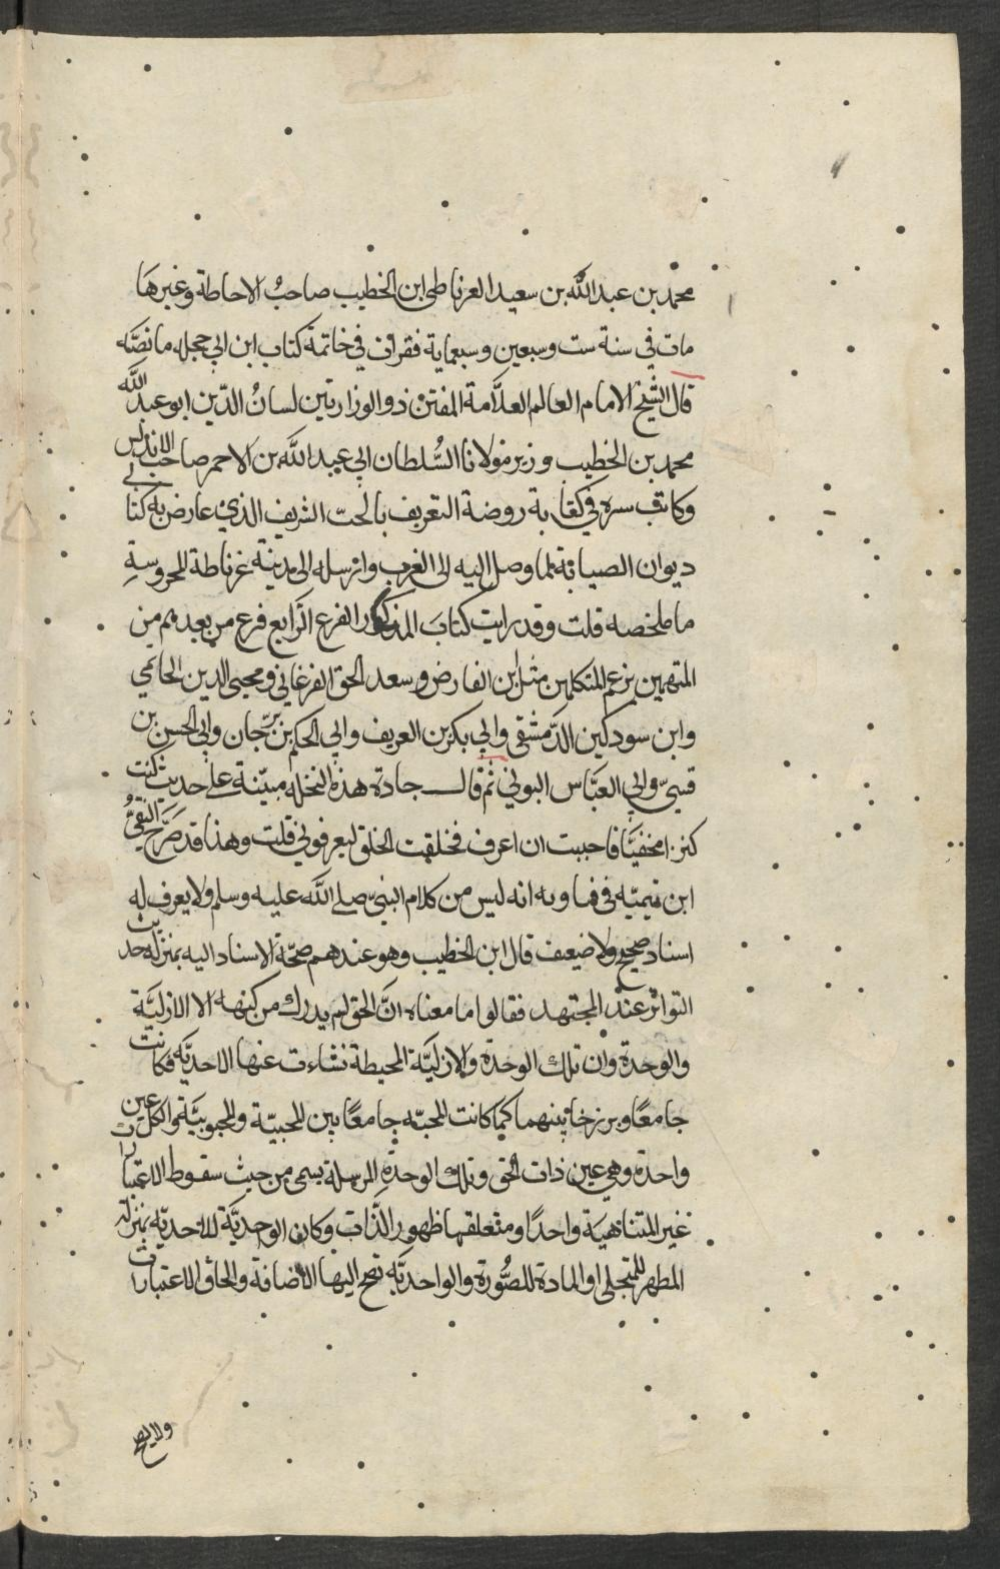 محمد بن عبد الله بن سعيد الغرناطى ابن الخطيب صاحبُ الاحاطة وغيرها
مات في سنة ست وسبعين وسبعماية فقرات في خاتمة كتاب ابن ابي حجله ما نصَّه
قال الشيخ الامام العالم العلَّامة المفنن ذو الوزارتين لسانُ الدّين ابو عبد الله
محمد بن الخطيب وزير مولانا السُّلطان ابي عبد الله بن الاحمر صاحب الاندلس
وكاتب سره في كتابه روضة التعريف بالحبّ الشريف الذي عارض به كتابي
ديوان الصبابة لما وصل اليه الى الغرب وارسله الى مدينة غرناطة المحروسةِ
ما ملخصه قلت وقد رايت كتابَ المذكور الفرع الرّابع فرع من بعدهم من
المتهمين بزعم المتكلمين مثل ابن الفارض وسعد الحق الفرغاني ومحيى الدين الحاتمي
وابن سودكين الدّمشقى وابي بكر بن العريف وابي الحكم بن برّجان وابي الحسن بن
قسيّ وابي العبَّاس البوني ثم قال جادة هذه النحله مبيّنة على حديث كنت
كنزا مخفيَّا فاحببت ان اعرف فخلقت الخلق ليعرفوني قلت وهذا قد صَرَّح التقيُّ
ابن تيميّه في فتاويه انه ليس من كلام النبيّ صلى الله عليه وسلم ولا يعرف له
اسناد صحيح ولا ضعيف قال ابن الخطيب وهو عندهم صحّة الاسناد اليه بمنزله حديث
التواتر عند المجتهد فقالوا ما معناه انَّ الحق لم يدرك من كنهه الا الازليَّة
والوحدة وان تلك الوحدة والازليَّة المحيطة نشاءت عنها الاحديَّه فكانت
جامعًا وبرزخا بينهما كما كانت المحبّه جامعًا بين المحبيّة والمحبوبيَّة والكل عين
واحدة وهي عين ذات الحق وتلك الوحدة المرسلة يسمى من حيث سقوط الاعتبارات
غير المتناهية واحدًا ومتعلقها ظهور الذَّات وكان الوحديَّة للاحديّه بمنزلة
المظهر للمتجلى او المادة للصُّورة والواحديَّه تصح اليها الاضافة والحاق الاعتبارات
ولا يصح